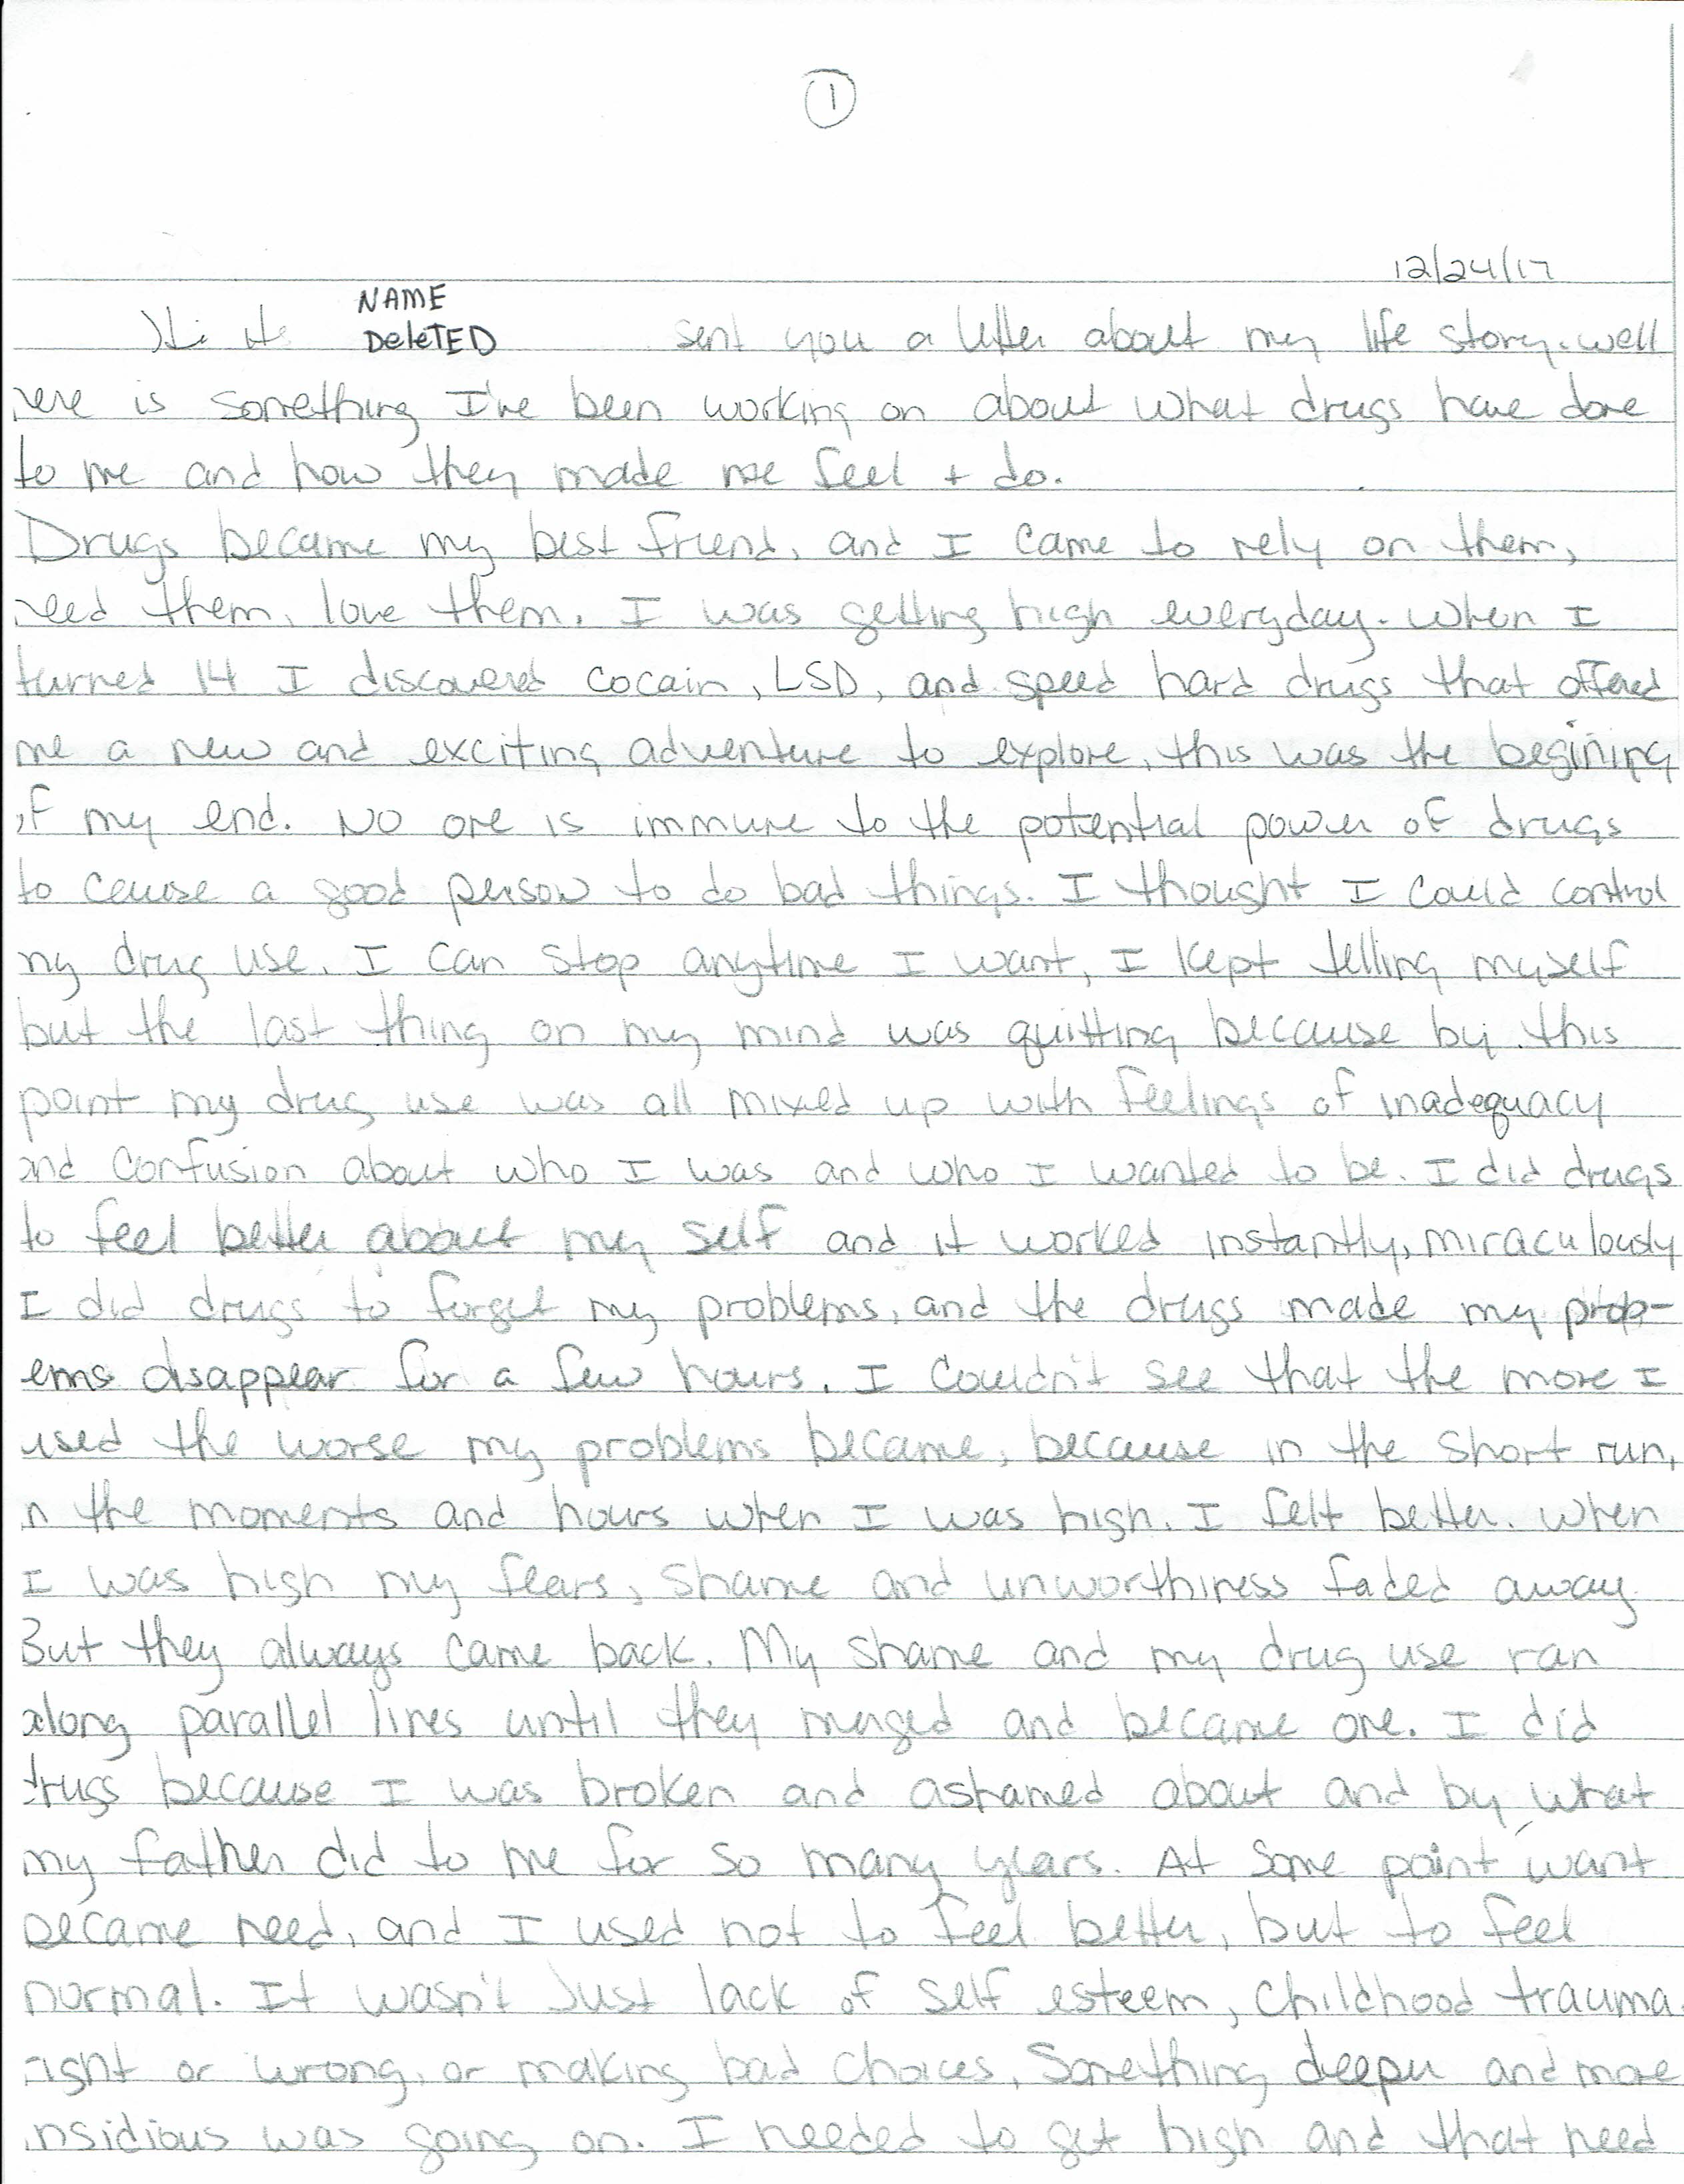 ①
12/24/17
NAME
Hi DELETED sent you a letter about my life story. well
here is something I've been working on about what drugs have done
to me and how they made me feel + do.
Drugs became my best friend, and I came to rely on them,
need them, love them. I was getting high everyday. When I
turned 14 I discovered cocain, LSD, and speed hard drugs that offered
me a new and exciting adventure to explore, this was the begining
of my end. No one is immune to the potential power of drugs
to cause a good person to do bad things. I thought I could control
my drug use. I can stop anytime I want, I kept telling myself
but the last thing on my mind was quitting because by this
point my drug use was all mixed up with feelings of inadequacy
and confusion about who I was and who I wanted to be. I did drugs
to feel better about my self and it worked instantly, miraculously
I did drugs to forget my problems, and the drugs made my prob-
ems disappear for a few hours. I couldn't see that the more I
used the worse my problems became, because in the short run,
in the moments and hours when I was high. I felt better. When
I was high my fears, shame and unworthiness faded away
But they always came back. My shame and my drug use ran
along parallel lines until they merged and became one. I did
drugs because I was broken and ashamed about and by what
my father did to me for so many years. At some point want
became need, and I used not to feel better, but to feel
normal. It wasn't just lack of self esteem, childhood trauma.
right or wrong, or making bad choices, Something deeper and more
insidious was going on. I needed to get high and that need